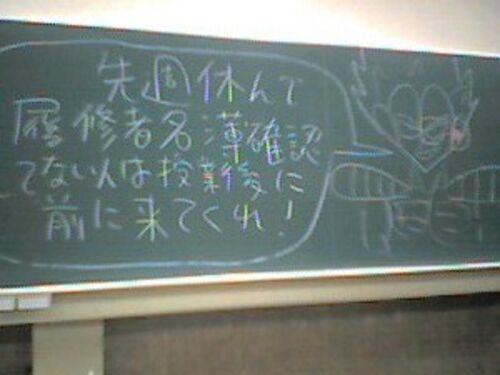 先週休んで
履修者名簿確認
てない人は授業後に
前に来てくれ!